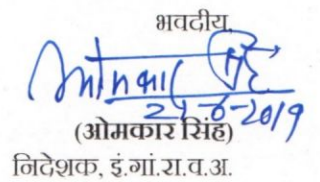 भवदीय,
24-6-2019
(ओमकार सिंह)
निदेशक, इं.गां.रा.व.अ.